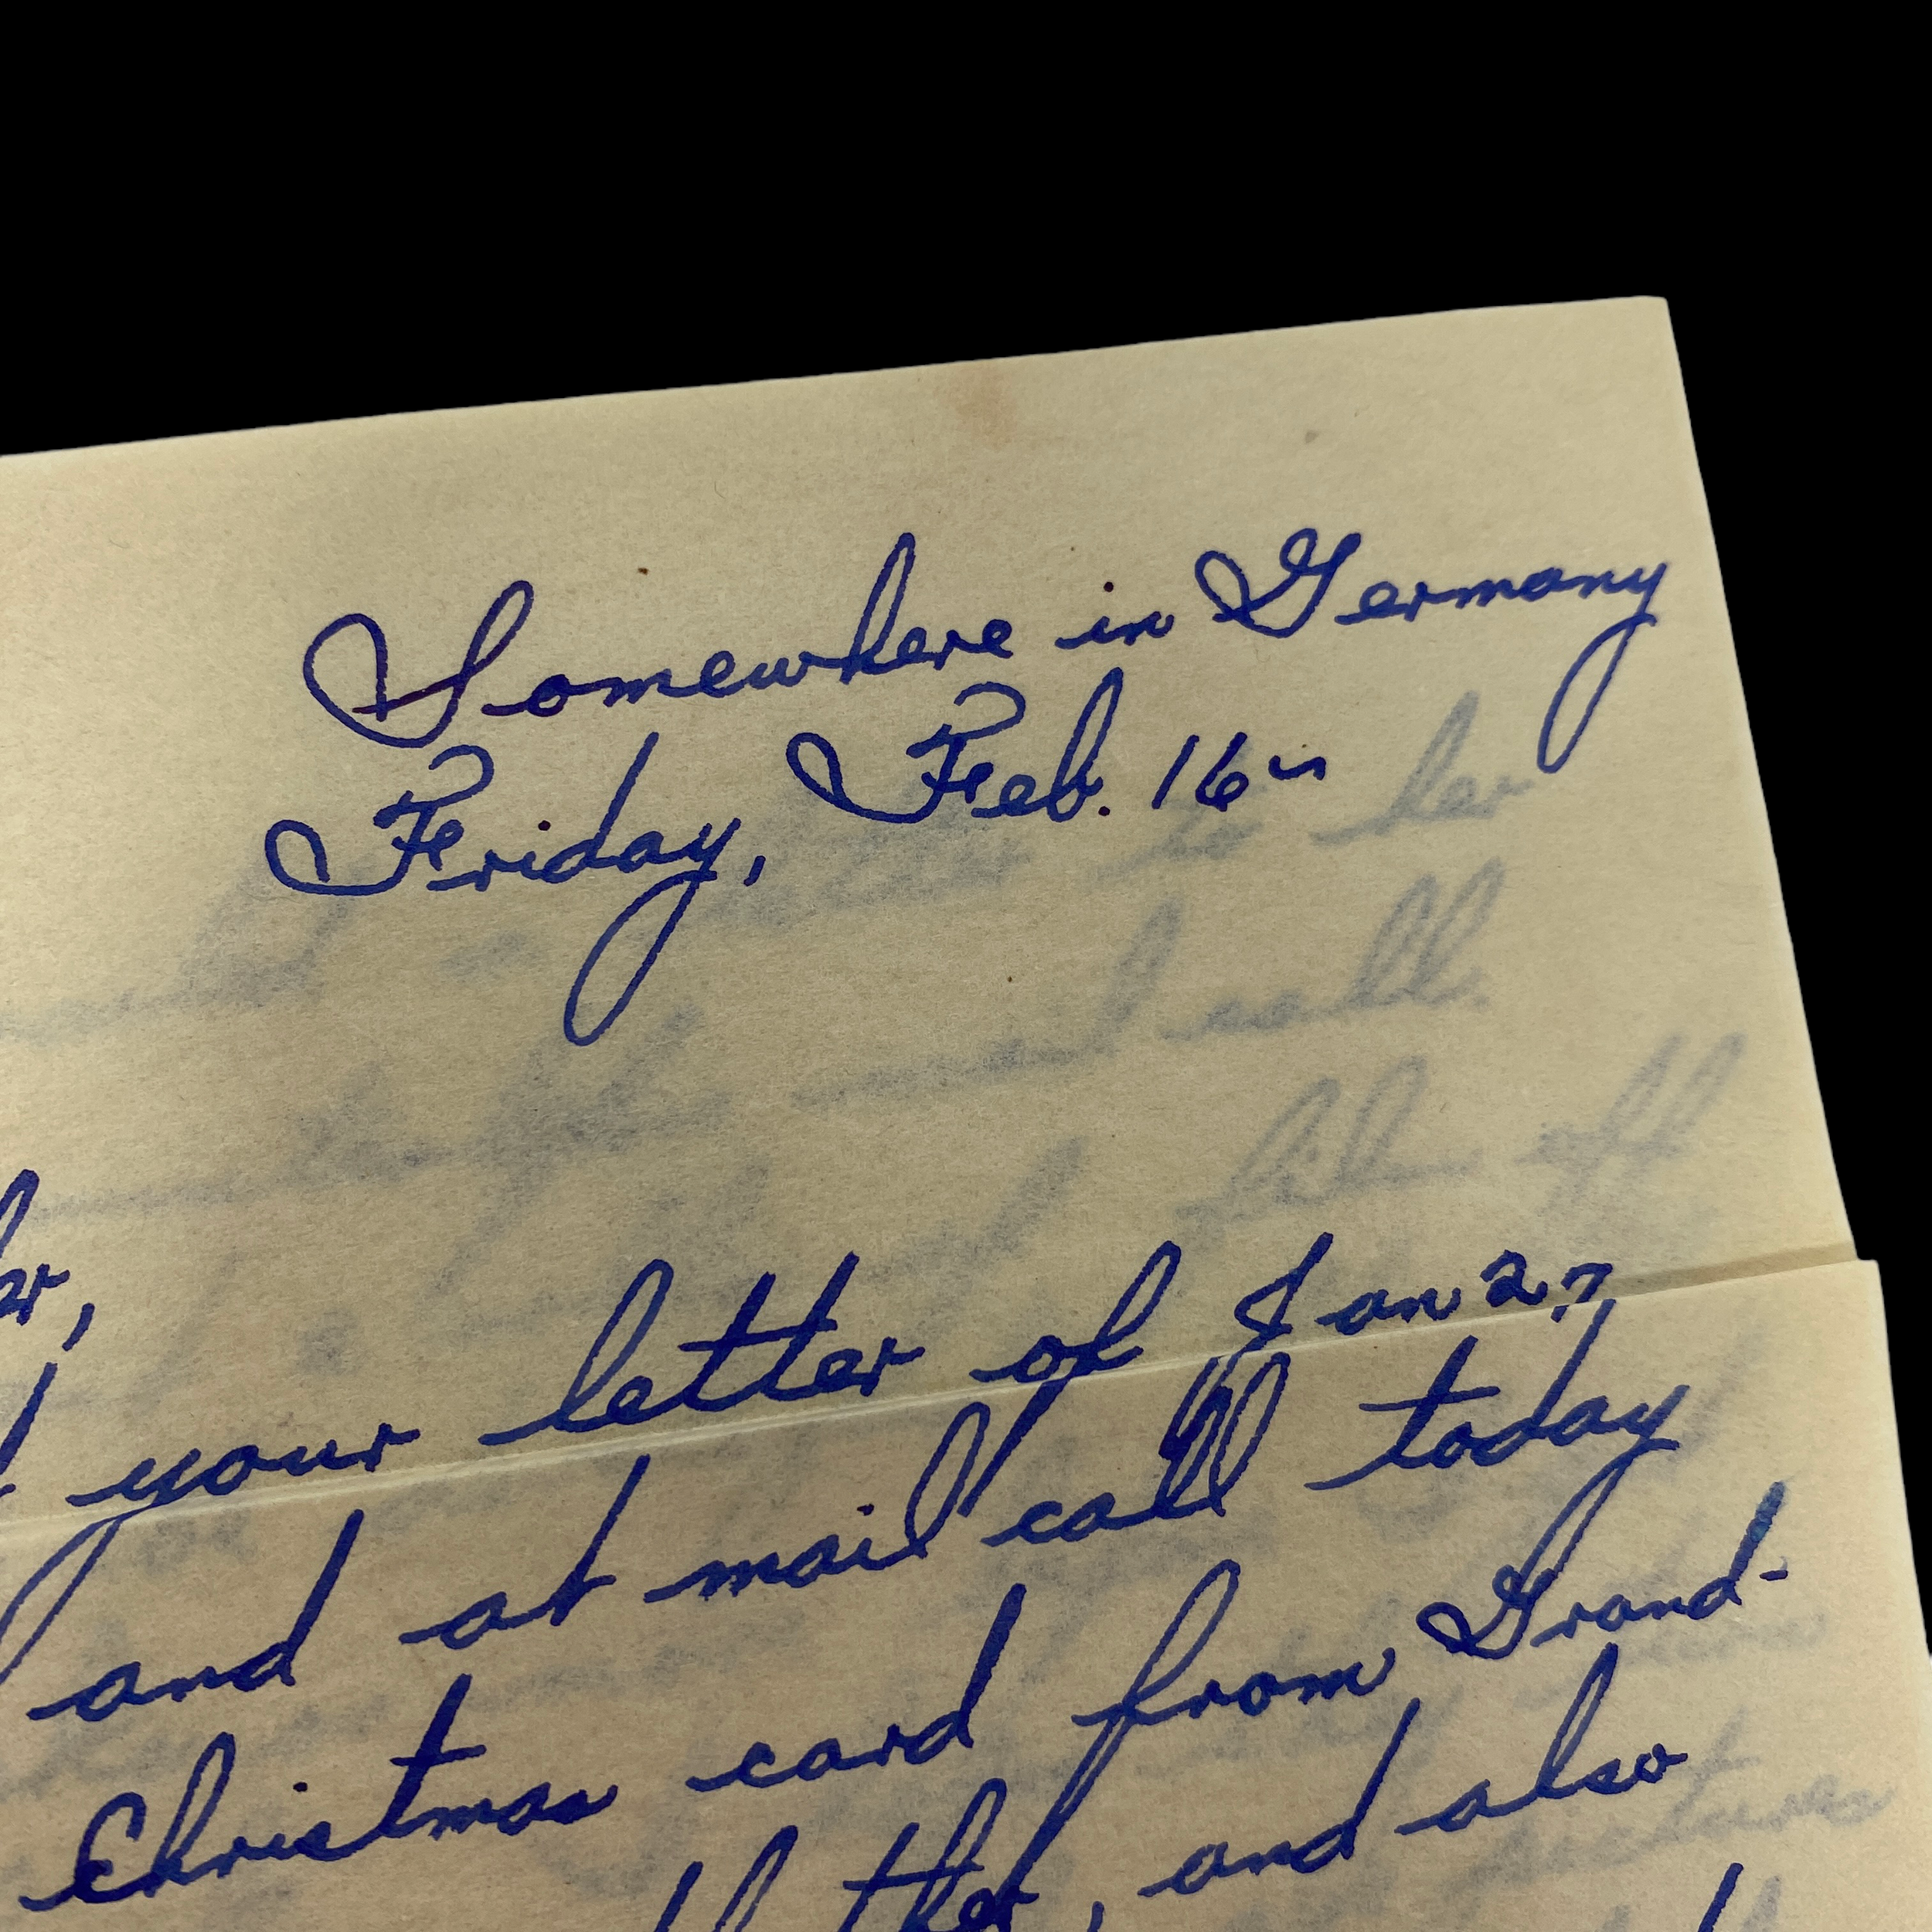 Somewhere in Germany
Friday, Feb. 16
your letter of Jan 27
and at mail call today
Christmas card from Grand-
and also